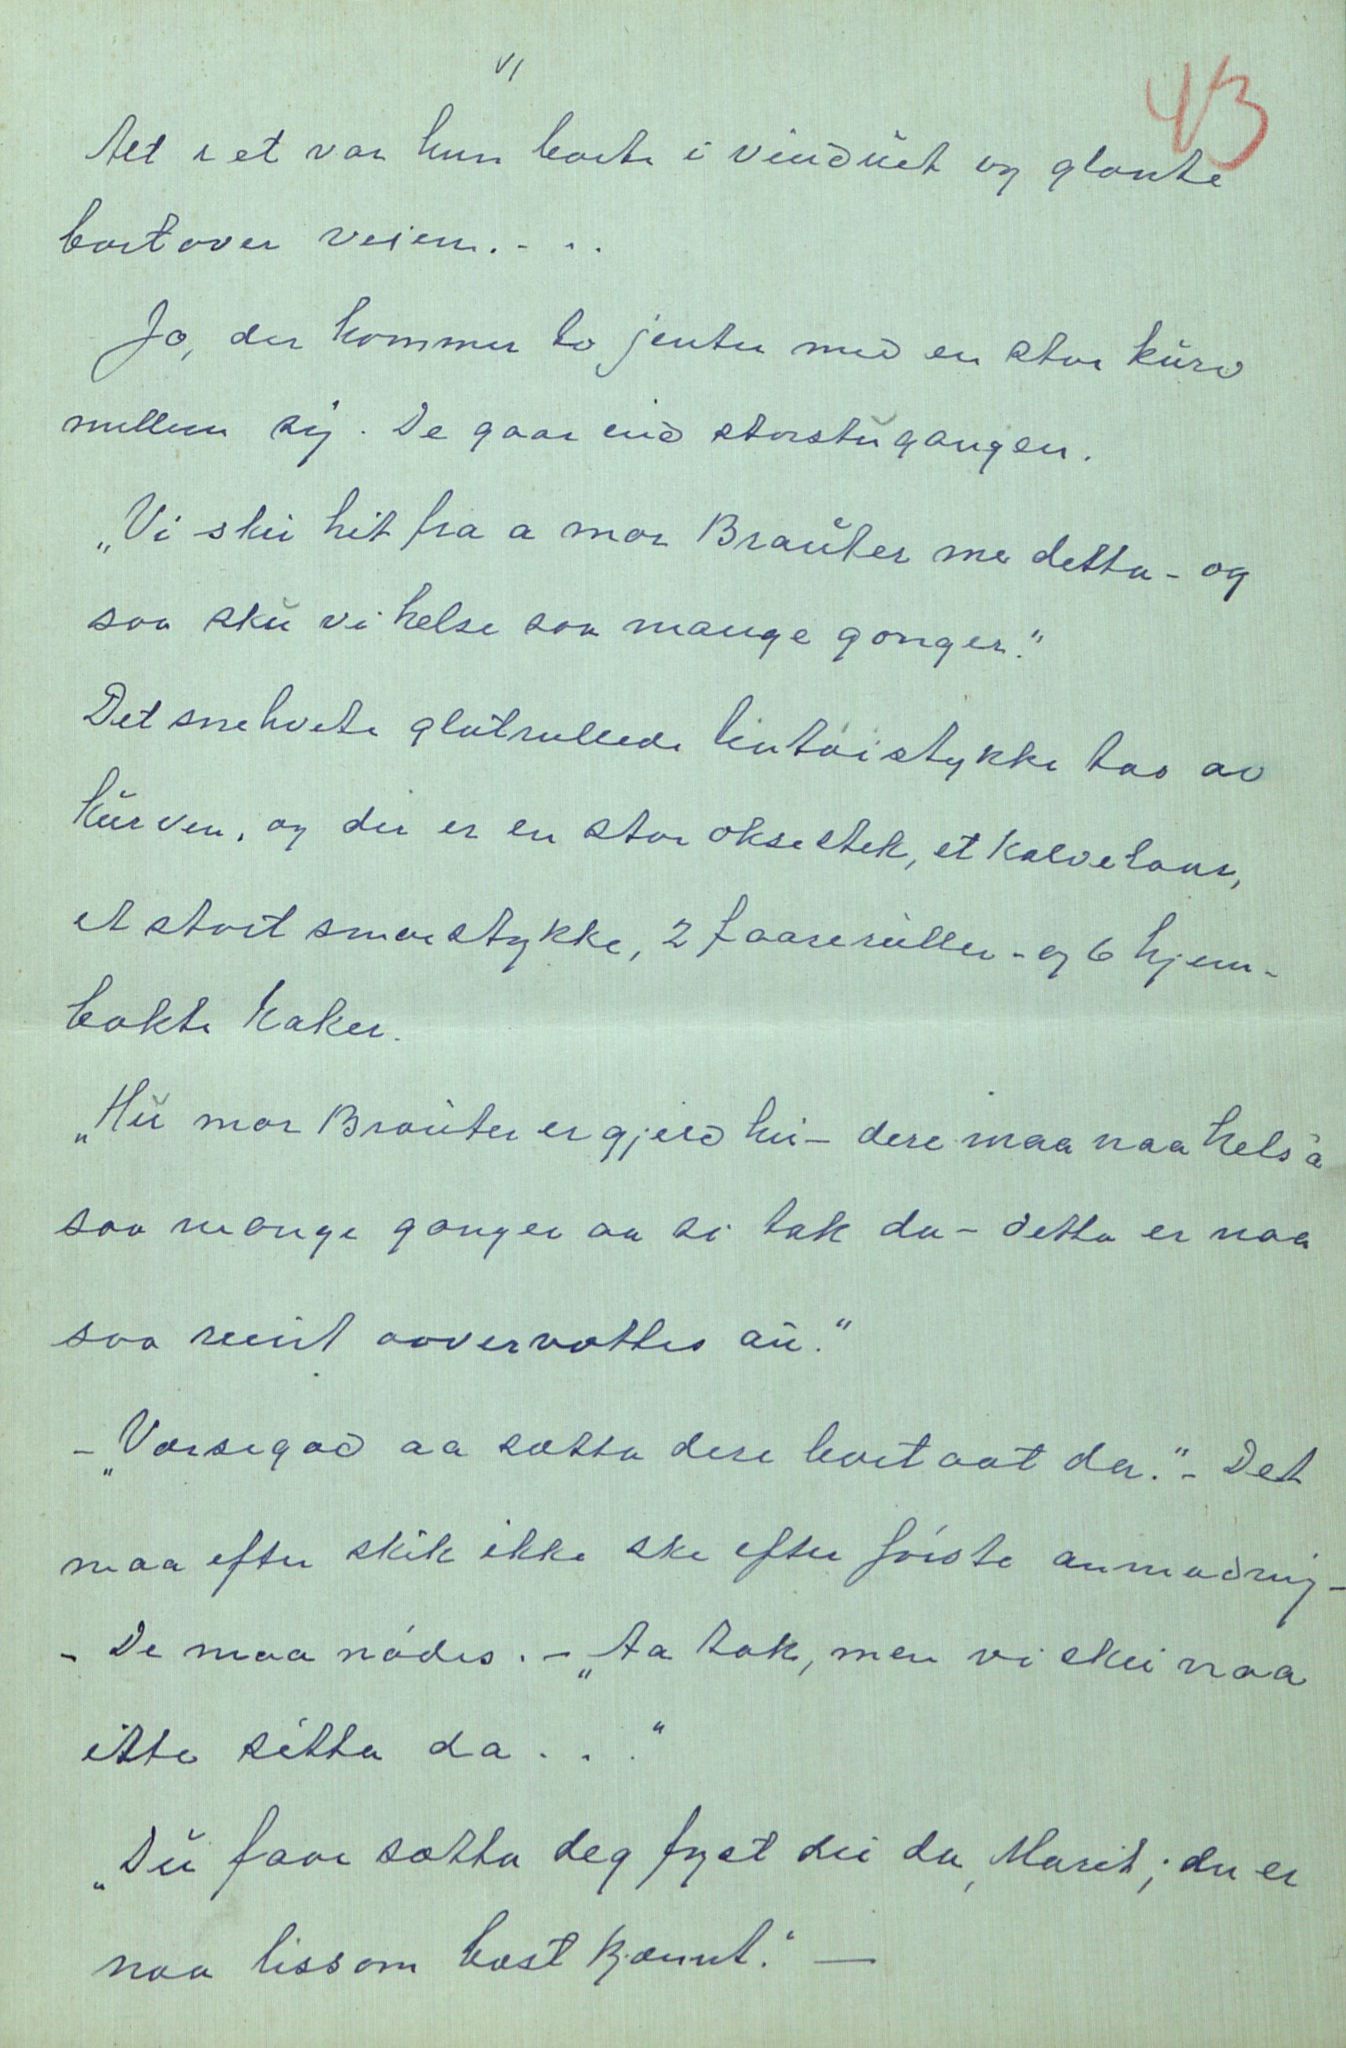 VI
43
Alt i et var hun borte i vinduet og glante
bortover veien. - . .
Jo, der kommer to jenter med en stor kurv
mellem sig. De gaar ind storstugangen.
„Vi sku hit fra a mor Brauter me detta - og
saa sku vi helse saa mange gonger."
Det snehvite glatrullede lintøistykke tas av
kurven, og der er en stor oksestek, et kalvelaar,
et stort smørstykke, 2 faareruller - og 6 hjem-
bakte kaker.
„Hu mor Brauter er gjeld hu - dere maa naa hels a
saa mange gonger aa si tak da - detta er naa
saa reint aovervættes au."
- „Værsegod aa sætta dere bort aat der." - Det
maa efter skik ikke ske efter første anmodning -
- De maa nødes. - „Aa tak, men vi sku naa
itte sitta da . . ."
„Du faar sætta deg fyst du da, Marit; du er
naa lissom bæst kjænnt." —